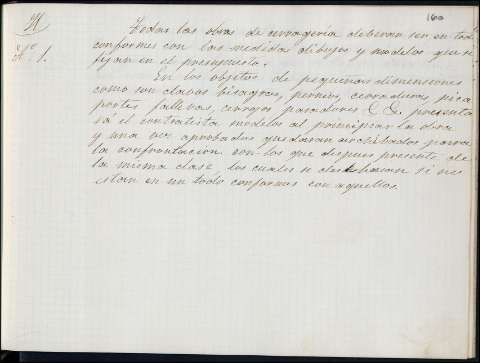 160
Todas las obras de cerrageria deberan ser en todo
Nº 1. conformes con las medidas dibujos y modelos que se
fijan en el presupuesto.
En los objetos de pequeñas dimensiones
como son clavos visagras, pernios, cerraduras, pica
portes fallevas, cerrojos pasadores &. &. presenta
rá el contratista modelos al principiar la obra
y una vez aprobados quedaran archibados para
la confrontacion con los que despues presente de
la misma clase los cuales se desecharan si no es
tan en un todo conformes con aquellos.